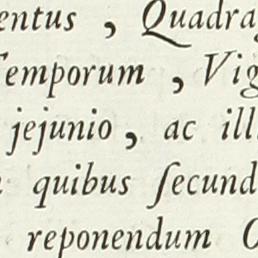 entus , Quadra
Temporum , Vig
jejunio, ac ill
quibus ſecund
reponendum